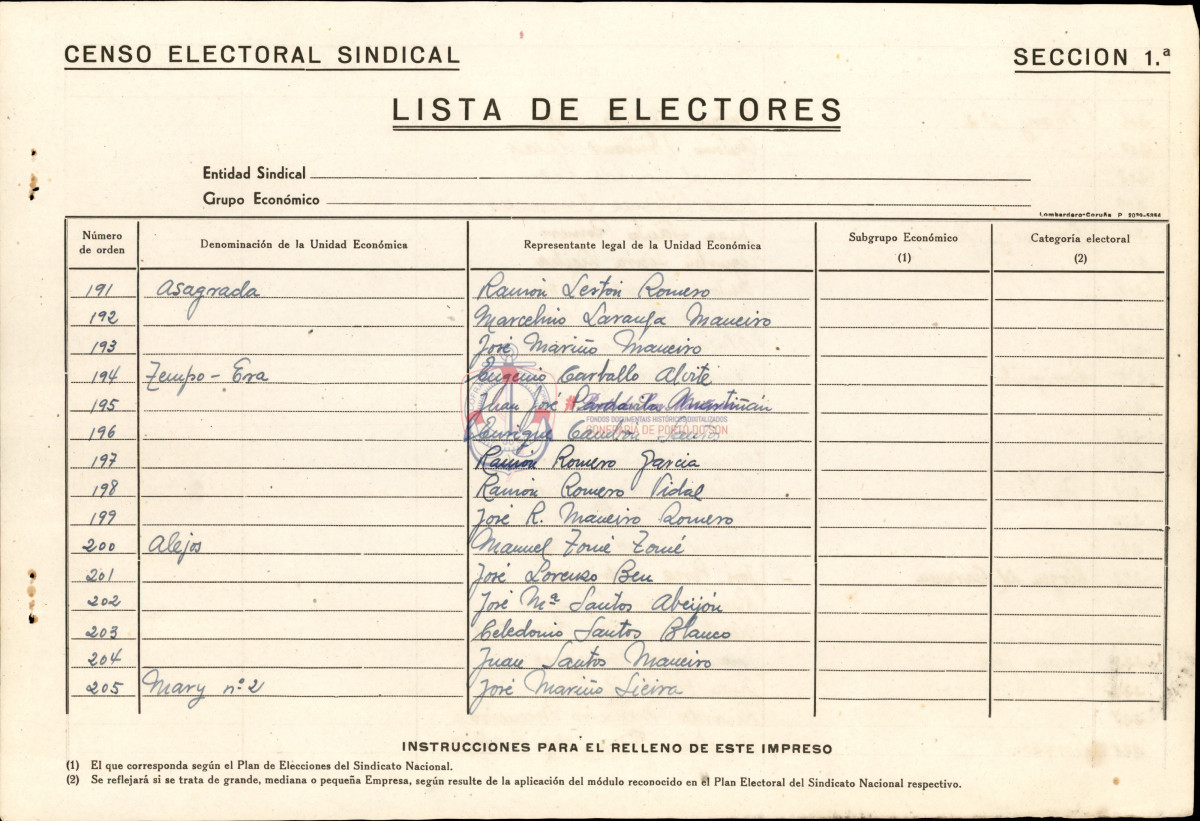 CENSO ELECTORAL SINDICAL
SECCION 1.ª
LISTA DE ELECTORES
Entidad Sindical
Grupo Económico
Lombardero-Coruña P
Número de orden Denominación de la Unidad Económica Representante legal de la Unidad Económica Subgrupo Económico (1) Categoría electoral (2)
191 Asagrada Ramón Lestón Romero
192 Marcelino Laranga Maneiro
193 José Mariño Maneiro
194 Tempo-Era Eugenio Carballo Alvite
195 Juan José Pardavila Muntiñán
FONDOS DOCUMENTAIS HISTÓRICOS DIXITALIZADOS
196 Enrique
CONFRARÍA DE PORTO DO SON
197 Ramón Romero Garcia
198 Ramón Romero Vidal
199 José R. Maneiro Romero
200 Alejos Manuel Tomé Tomé
201 José Lorenzo Ben
202 José Mª Santos Abeijón
203 Celedonio Santos Blanco
204 Juan Santos Maneiro
205 Mary nº 2 José Mariño Lieira
INSTRUCCIONES PARA EL RELLENO DE ESTE IMPRESO
(1) El que corresponda según el Plan de Elecciones del Sindicato Nacional.
(2) Se reflejará si se trata de grande, mediana o pequeña Empresa, según resulte de la aplicación del módulo reconocido en el Plan Electoral del Sindicato Nacional respectivo.